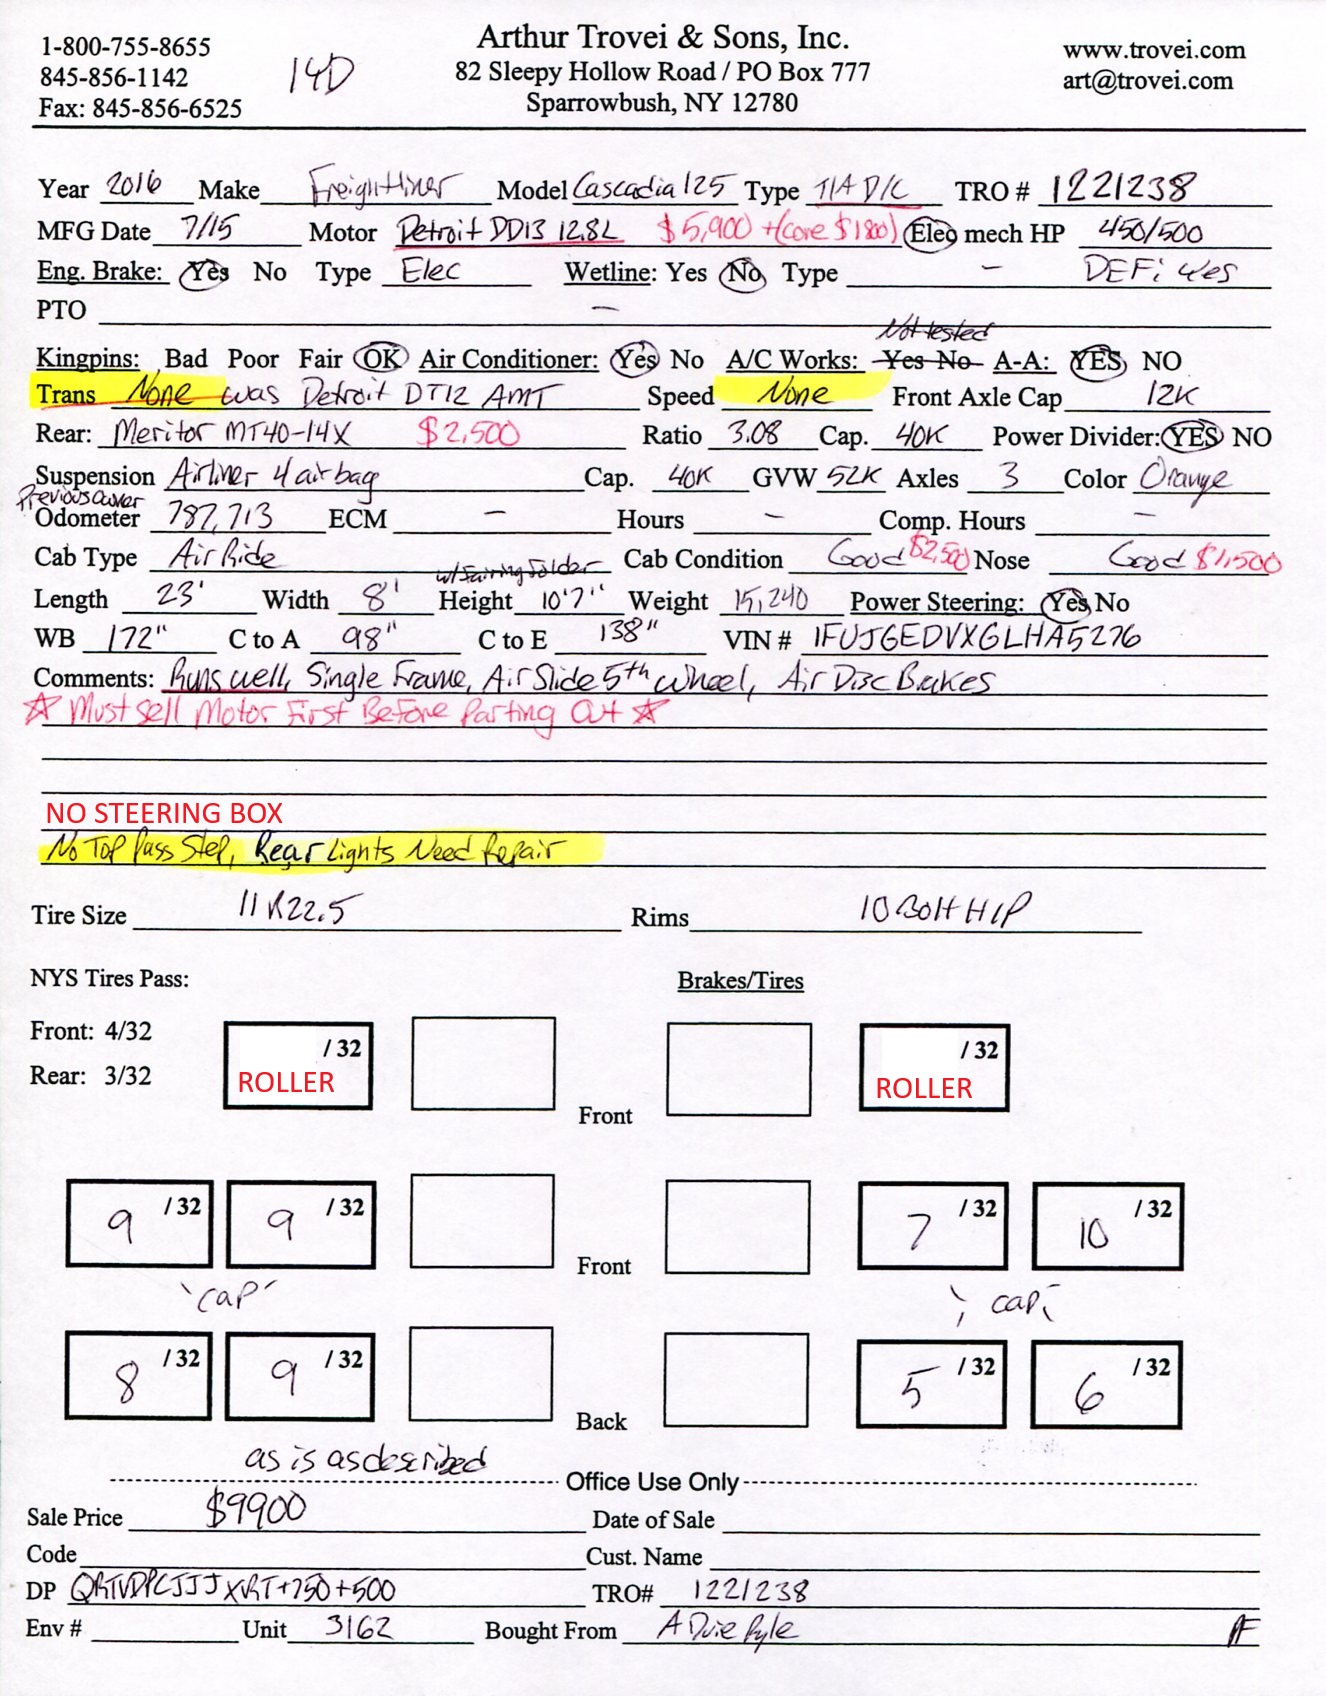 1-800-755-8655
845-856-1142
Fax: 845-856-6525
14D
Arthur Trovei & Sons, Inc.
82 Sleepy Hollow Road / PO Box 777
Sparrowbush, NY 12780
www.trovei.com
art@trovei.com
Year 2016 Make Freightliner Model Cascadia 125 Type T/A D/C TRO # 1221238
MFG Date 7/15 Motor Detroit DD13 12.8L $5,900 +(core $1800) Elec mech HP 450/500
Eng. Brake: Yes No Type Elec Wetline: Yes No Type - DEF: Yes
PTO -
Not tested
Kingpins: Bad Poor Fair OK Air Conditioner: Yes No A/C Works: Yes No A-A: YES NO
Trans None was Detroit DT12 AMT Speed None Front Axle Cap 12K
Rear: Meritor MT40-14X $2,500 Ratio 3.08 Cap. 40K Power Divider: YES NO
Suspension Airliner 4 airbag Cap. 40K GVW 52K Axles 3 Color Orange
Previous owner
Odometer 787,713 ECM - Hours - Comp. Hours -
Cab Type Air Ride Cab Condition Good $2,500 Nose Good $1,500
w/Fairing Folder
Length 23' Width 8' Height 10'7" Weight 15,240 Power Steering: Yes No
WB 172" C to A 98" C to E 138" VIN # 1FUJGEDVXGLHA5276
Comments: Runs well, Single Frame, Air Slide 5th Wheel, Air Disc Brakes
☆ Must Sell Motor First Before Parting Out ☆
NO STEERING BOX
No Top Pass Step, Rear Lights Need Repair
Tire Size 11R22.5 Rims 10 Bolt H/P
NYS Tires Pass: Brakes/Tires
Front: 4/32
Rear: 3/32
/ 32 / 32
ROLLER ROLLER
Front
9 / 32 9 / 32 7 / 32 10 / 32
Front
'cap' 'cap'
8 / 32 9 / 32 5 / 32 6 / 32
Back
as is as described
Office Use Only
Sale Price $9900 Date of Sale
Code Cust. Name
DP QRTVDPCJJJXRT+750+500 TRO# 1221238
Env # Unit 3162 Bought From A Duie Pyle